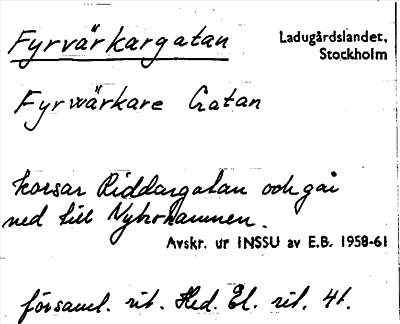 Fyrvärkargatan
Ladugårdslandet,
Stockholm
Fyrwärkare Gatan
korsar Riddargatan och går
ned till Nybrohamnen.
Avskr. ur INSSU av E.B. 1958-61
församl. rit. Hed. El. rit. 41.